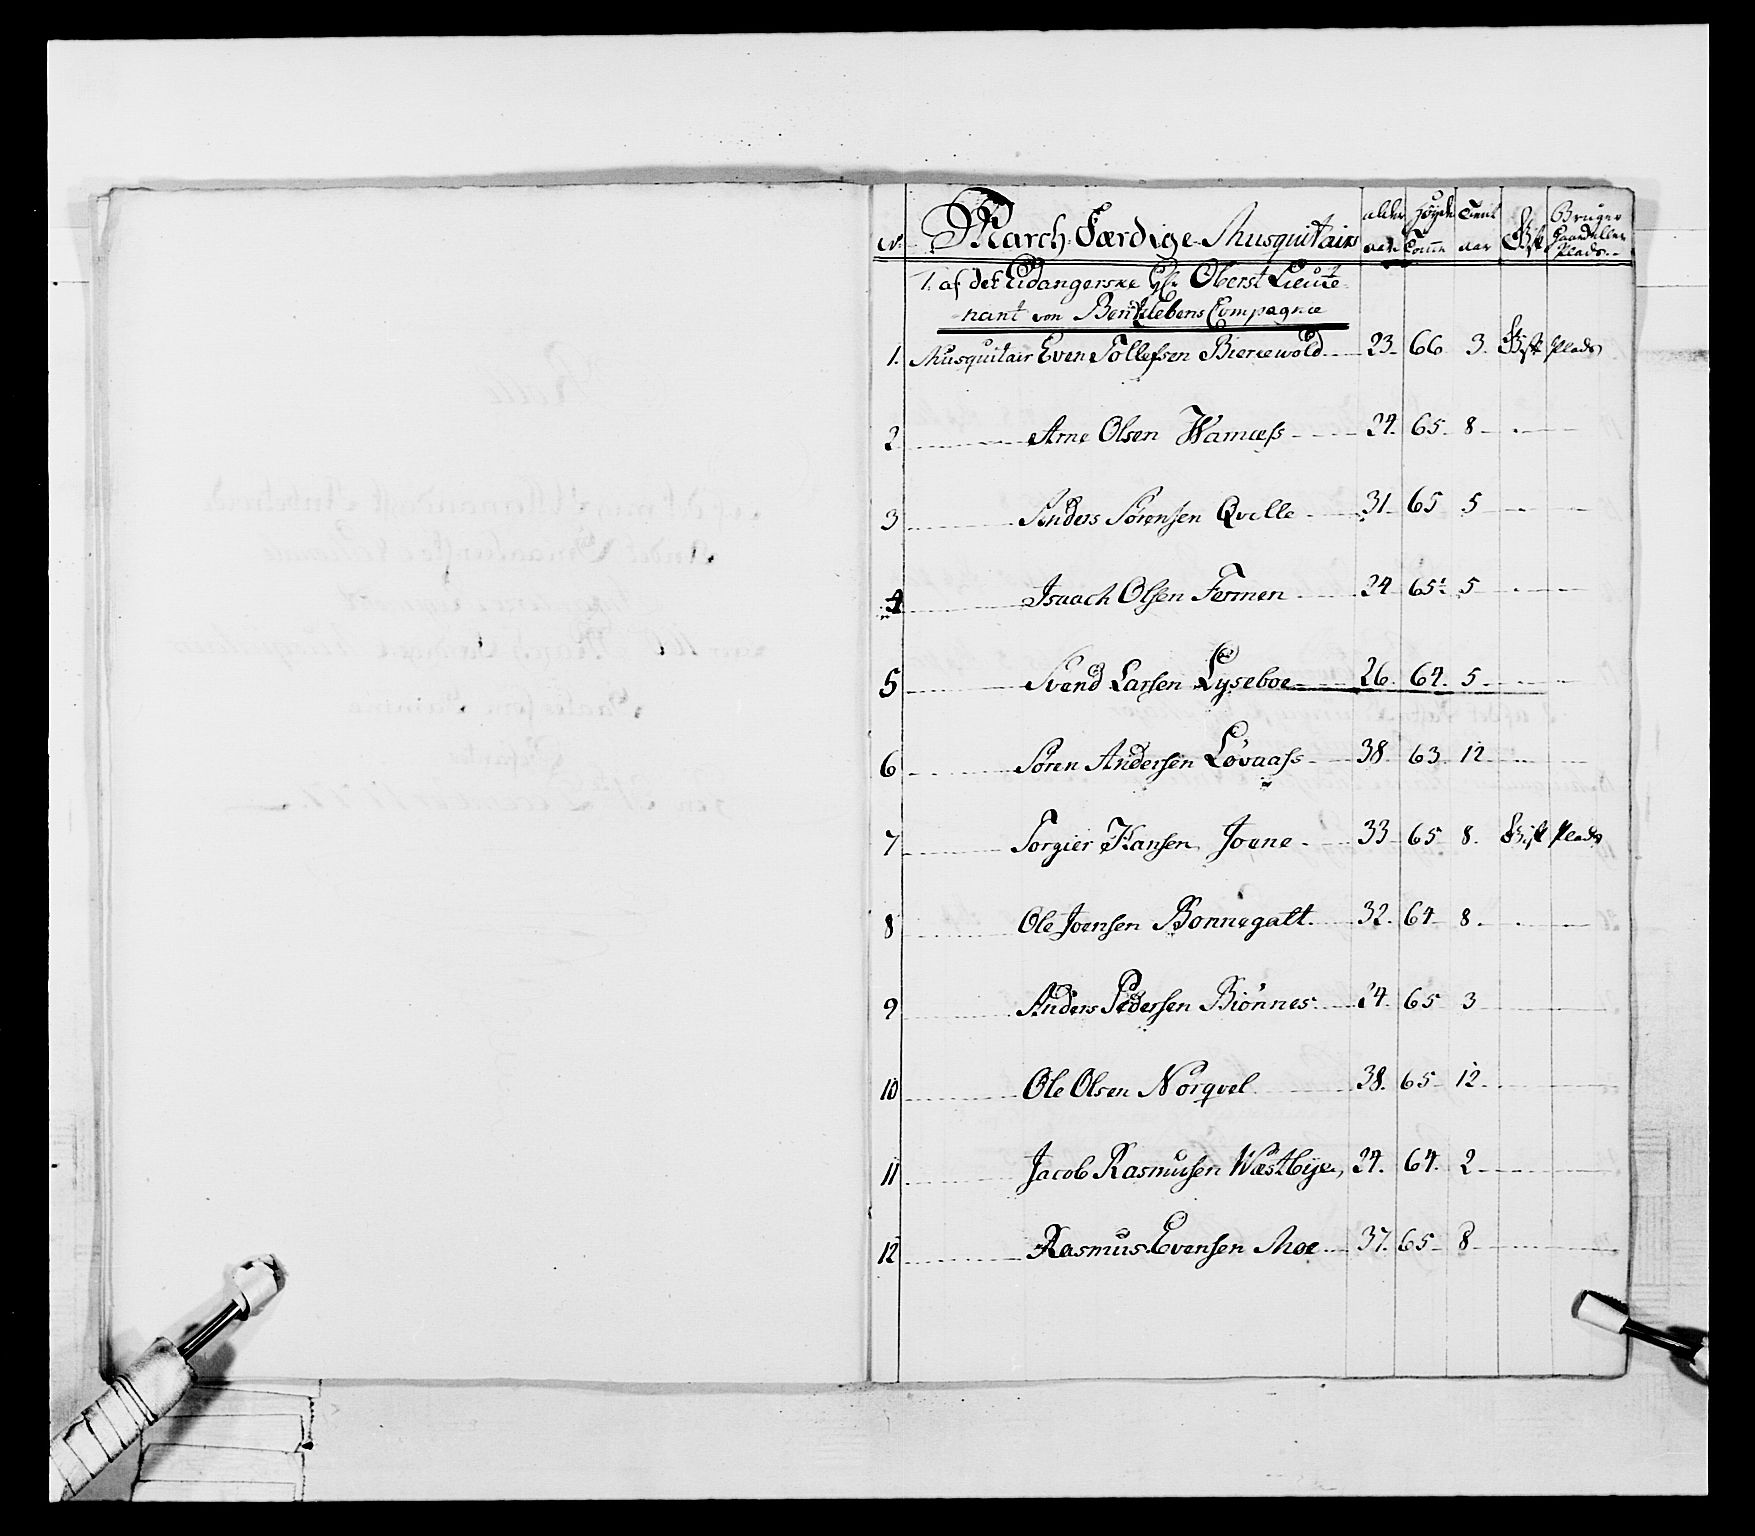 No. March Færdige Musquitairs alder aar Høyde Tomme Tient aar Gift Bruger Gaard eller Plads
1. af det Eidangerske Hr. Oberst Lieute-
nant von Bentzlebens Compagnie
1. Musquitair Even Tollefsen Biercewold 23. 66 3. Gift Plads
2 Arne Olsen Wamess 24. 65. 8
3 Anders Sørensen Qvelle 31. 65 5
4 Isaach Olsen Fermen 24 65½ 5
5 Svend Larsen Lyseboe 26. 64. 5
6 Søren Andersen Løvaass 38. 63. 12
7 Torgier Hansen Joene 33 65 8. Gift Plads
8 Ole Joensen Bonnegalt 32. 64 8
9 Anders Pedersen Biønnes 24. 65 3
10 Ole Olsen Nørqvel 38. 65 12
11 Jacob Rasmusen Wæstbye, 24. 64. 2
12 Rasmus Evensen Moe 37. 65 8